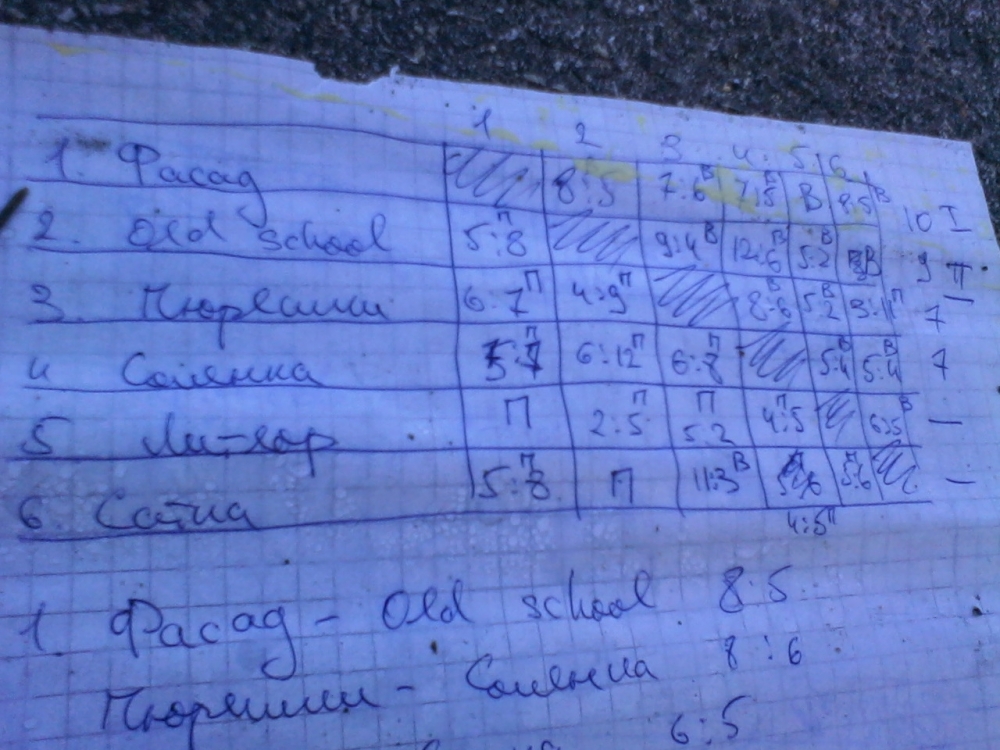 1 2 3 4 5 6
1. Фасад 8:5 7:6 В 7:5 В В 8:5 В 10 I
2. Old school 5:8 П 9:4 В 12:6 В 5:2 В В 9 II
3. Тюряшки 6:7 П 4:9 П 8:6 В 5:2 В 3:11 П 7
4 Солянка 5:7 П 6:12 П 6:8 П 5:4 В 5:4 В 7
5 П 2:5 П П 5:2 4:5 П 6:5 В —
6 5:8 П П 11:3 В 5:6 П —
4:5 П
1 Фасад - Old school 8:5
Тюряшки - Солянка 8:6
6:5